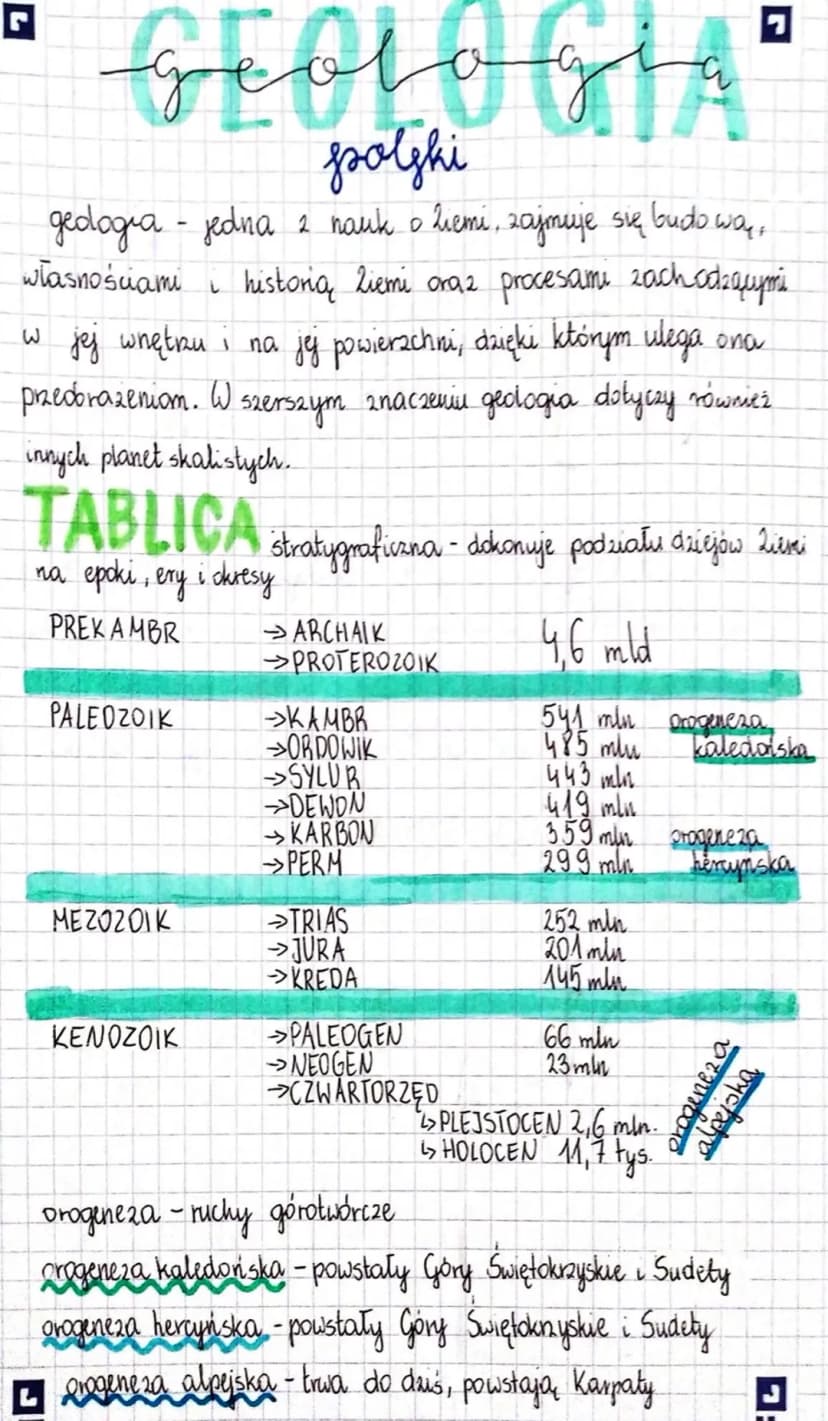 GEOLOGIA
geologia
polski
geologia - jedna z nauk o Ziemi, zajmuje się budową,
własnościami i historią Ziemi oraz procesami zachodzącymi
w jej wnętrzu i na jej powierzchni, dzięki którym ulega ona
przeobrażeniom. W szerszym znaczeniu geologia dotyczy również
innych planet skalistych.
TABLICA stratygraficzna - dokonuje podziału dziejów Ziemi
na epoki, ery i okresy
PREKAMBR → ARCHAIK 4,6 mld
→ PROTEROZOIK
PALEOZOIK → KAMBR 541 mln orogeneza
→ ORDOWIK 485 mln kaledońska
→ SYLUR 443 mln
→ DEWON 419 mln
→ KARBON 359 mln orogeneza
→ PERM 299 mln hercyńska
MEZOZOIK → TRIAS 252 mln
→ JURA 201 mln
→ KREDA 145 mln
KENOZOIK → PALEOGEN 66 mln
→ NEOGEN 23 mln
→ CZWARTORZĘD
↳ PLEJSTOCEN 2,6 mln.
↳ HOLOCEN 11,7 tys.
orogeneza
alpejska
orogeneza - ruchy górotwórcze
orogeneza kaledońska - powstały Góry Świętokrzyskie i Sudety
orogeneza hercyńska - powstały Góry Świętokrzyskie i Sudety
orogeneza alpejska - trwa do dziś, powstają Karpaty